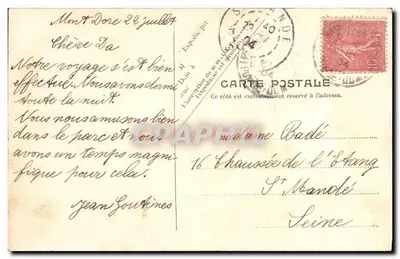 Mont Dore 22 juillet
Chère Da
Notre voyage s'est bien
effectué. Nous avons dormi
toute la nuit.
Nous nous amusons bien
dans le parc et nous
avons un temps magni-
fique pour cela.
Jean
CARTE POSTALE
Ce côté est exclusivement réservé à l'adresse.
Madame Badé
16 Chaussée de l'Etang
St Mandé
Seine